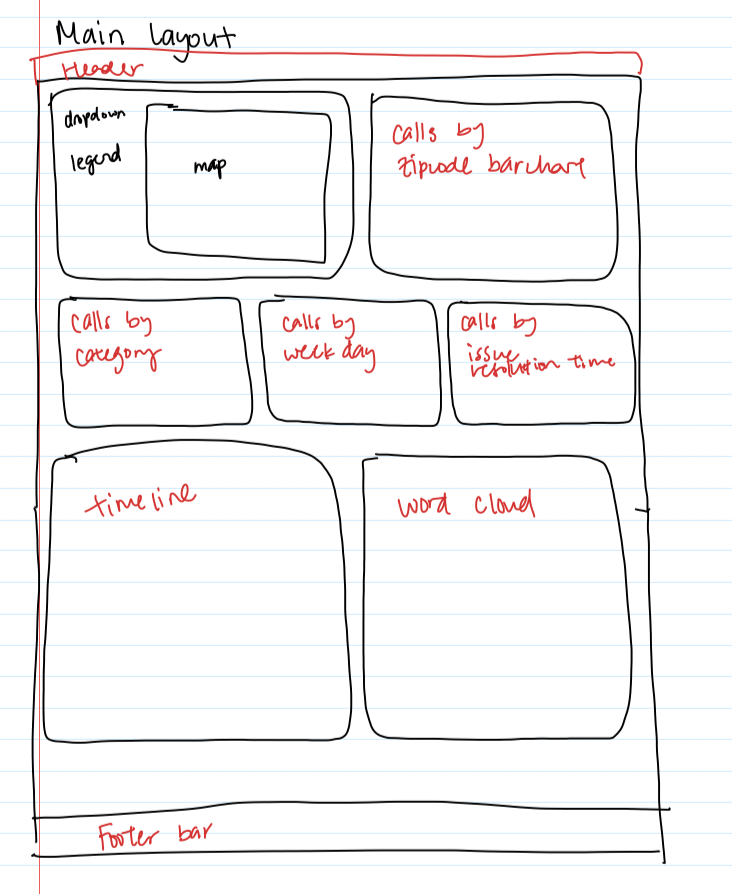 Main Layout
Header
dropdown
legend
map
calls by
zipcode barchart
calls by
category
calls by
week day
calls by
issue
resolution time
timeline
word cloud
Footer bar